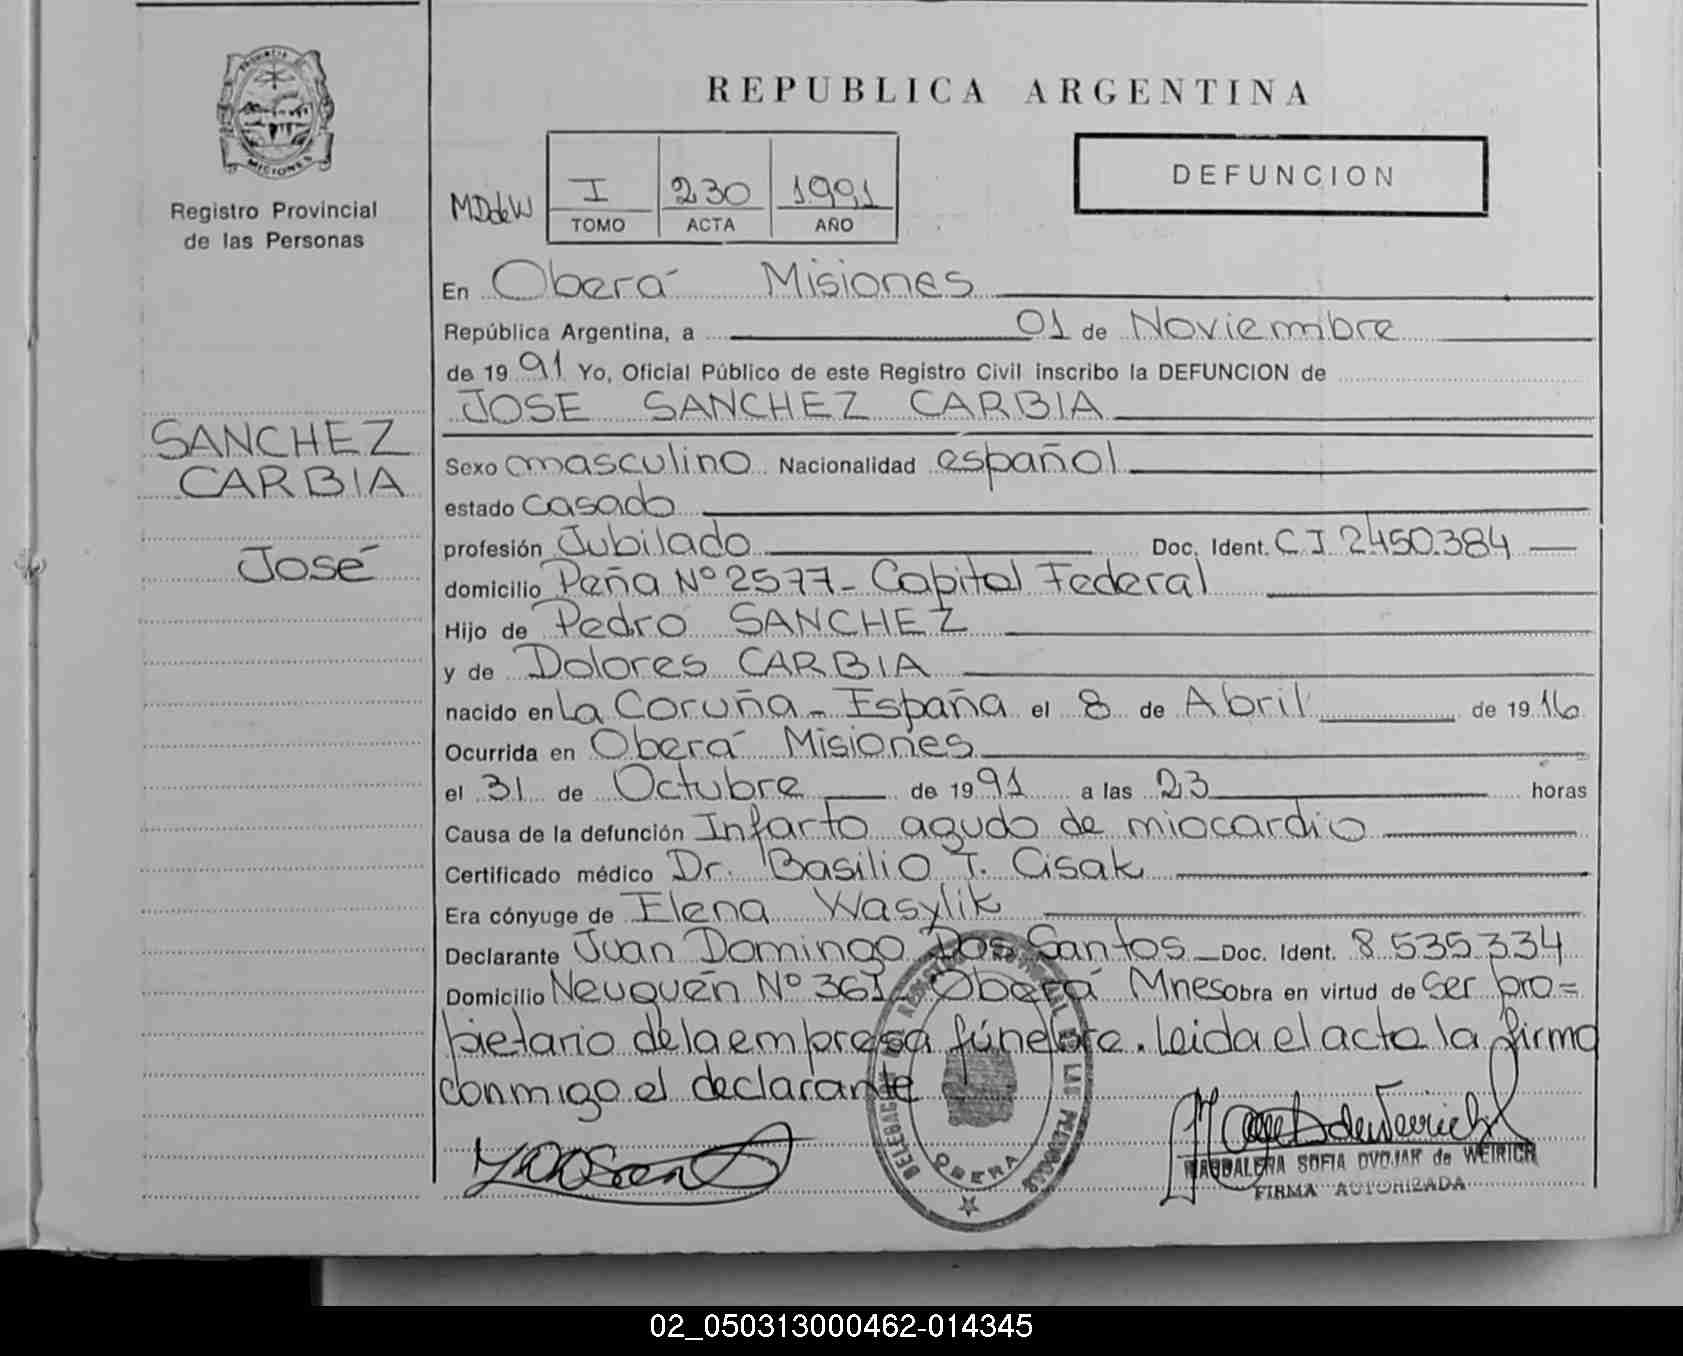 PROVINCIA DE
MISIONES
Registro Provincial
de las Personas
SANCHEZ
CARBIA
José
REPUBLICA ARGENTINA
MDdeW
I 230 1991
TOMO ACTA AÑO
DEFUNCION
En Oberá Misiones
República Argentina, a 01 de Noviembre
de 1991 Yo, Oficial Público de este Registro Civil inscribo la DEFUNCION de
JOSE SANCHEZ CARBIA
Sexo masculino Nacionalidad español
estado casado
profesión Jubilado Doc. Ident. C.I. 2.450.384
domicilio Peña Nº 2577 - Capital Federal
Hijo de Pedro SANCHEZ
y de Dolores CARBIA
nacido en La Coruña - España el 8 de Abril de 1916
Ocurrida en Oberá Misiones
el 31 de Octubre de 1991 a las 23 horas
Causa de la defunción Infarto agudo de miocardio
Certificado médico Dr. Basilio T. Cisak
Era cónyuge de Elena Wasylik
Declarante Juan Domingo Dos Santos - Doc. Ident. 8.535.334
Domicilio Neuquén Nº 361 - Oberá Mnes obra en virtud de ser pro=
pietario de la empresa fúnebre. Leida el acta la firma
conmigo el declarante
OBERA
MAGDALENA SOFIA DVOJAK de WEIRICH
FIRMA AUTORIZADA
02_050313000462-014345